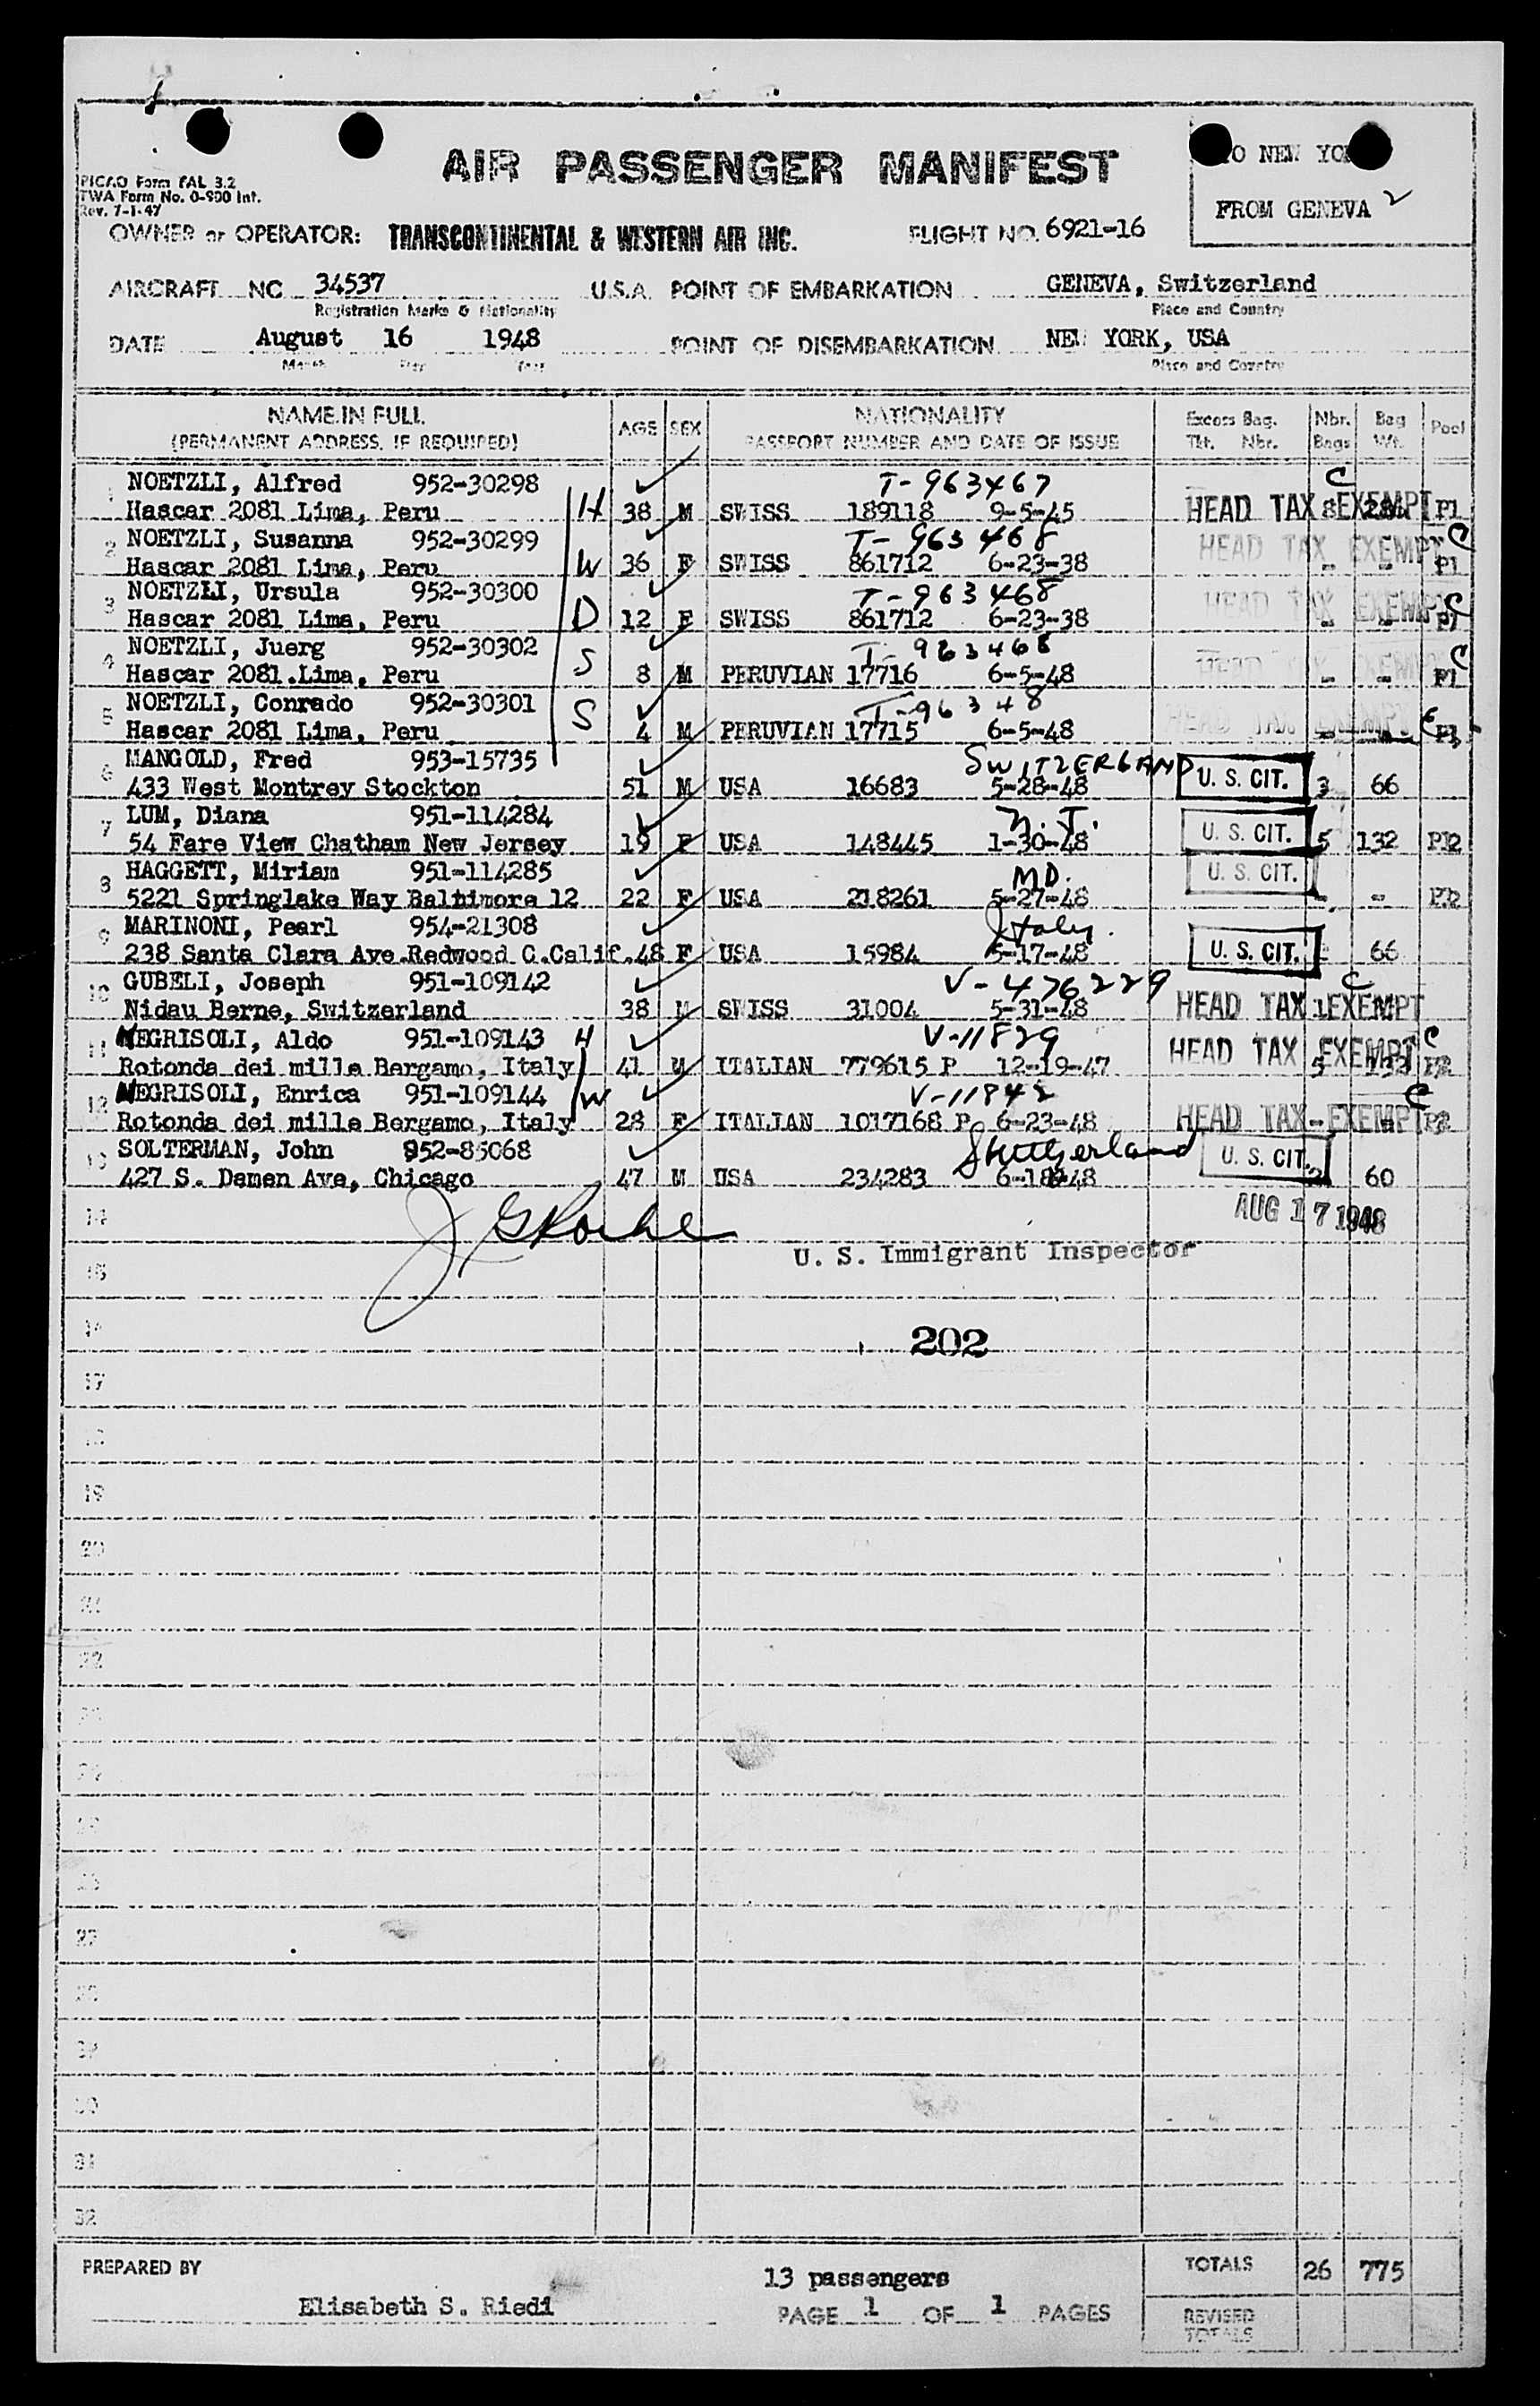 AIR PASSENGER MANIFEST
TO NEW YO
FROM GENEVA 2
PICAO Form FAL 3.2
TWA Form No. 0-900 Int.
Rev. 7-1-47
OWNER or OPERATOR: TRANSCONTINENTAL & WESTERN AIR INC. FLIGHT NO. 6921-16
AIRCRAFT NC 34537 U.S.A. POINT OF EMBARKATION GENEVA, Switzerland
Registration Marks & Nationality Place and Country
DATE August 16 1948 POINT OF DISEMBARKATION NEW YORK, USA
Month Day Year Place and Country
NAME IN FULL AGE SEX NATIONALITY Excess Bag. Nbr. Bag Pool
(PERMANENT ADDRESS, IF REQUIRED) PASSPORT NUMBER AND DATE OF ISSUE Tkt. Nbr. Bags Wt.
1 NOETZLI, Alfred 952-30298 T-963467 C
Hascar 2081 Lima, Peru H 38 M SWISS 189118 9-5-45 HEAD TAX EXEMPT 8 P1
2 NOETZLI, Susanna 952-30299 T-963468 HEAD TAX EXEMPT C
Hascar 2081 Lima, Peru W 36 F SWISS 861712 6-23-38 - - P1
3 NOETZLI, Ursula 952-30300 T-963468 HEAD TAX EXEMPT C
Hascar 2081 Lima, Peru D 12 F SWISS 861712 6-23-38 - - P1
4 NOETZLI, Juerg 952-30302 T-963468 HEAD TAX EXEMPT C
Hascar 2081.Lima, Peru S 8 M PERUVIAN 17716 6-5-48 - - P1
5 NOETZLI, Conrado 952-30301 T-96348 HEAD TAX EXEMPT C
Hascar 2081 Lima, Peru S 4 M PERUVIAN 17715 6-5-48 - - P1
6 MANGOLD, Fred 953-15735 SWITZERLAND
433 West Montrey Stockton 51 M USA 16683 5-28-48 U. S. CIT. 3 66
7 LUM, Diana 951-114284 N.J.
54 Fare View Chatham New Jersey 19 F USA 148445 1-30-48 U. S. CIT. 5 132 P12
8 HAGGETT, Miriam 951-114285 MD. U. S. CIT.
5221 Springlake Way Baltimore 12 22 F USA 218261 5-27-48 - - P12
9 MARINONI, Pearl 954-21308 Italy.
238 Santa Clara Ave.Redwood C.Calif.48 F USA 15984 5-17-48 U. S. CIT. 66
10 GUBELI, Joseph 951-109142 V-476229 C
Nidau Berne, Switzerland 38 M SWISS 31004 5-31-48 HEAD TAX EXEMPT 1
11 NEGRISOLI, Aldo 951-109143 H V-11829 HEAD TAX EXEMPT C
Rotonda dei mille Bergamo, Italy 41 M ITALIAN 779615 P 12-19-47 5 132 P2
12 NEGRISOLI, Enrica 951-109144 W V-11842 C
Rotonda dei mille Bergamo, Italy 28 F ITALIAN 1017168 P 6-23-48 HEAD TAX EXEMPT - - P2
13 SOLTERMAN, John 952-85068 Switzerland U. S. CIT.
427 S. Damen Ave, Chicago 47 M USA 234283 6-18-48 2 60
14 AUG 17 1948
U. S. Immigrant Inspector
15
16 202
17
18
19
20
21
22
23
24
25
26
27
28
29
30
31
32
PREPARED BY 13 passengers TOTALS 26 775
Elisabeth S. Riedi PAGE 1 OF 1 PAGES REVISED
TOTALS